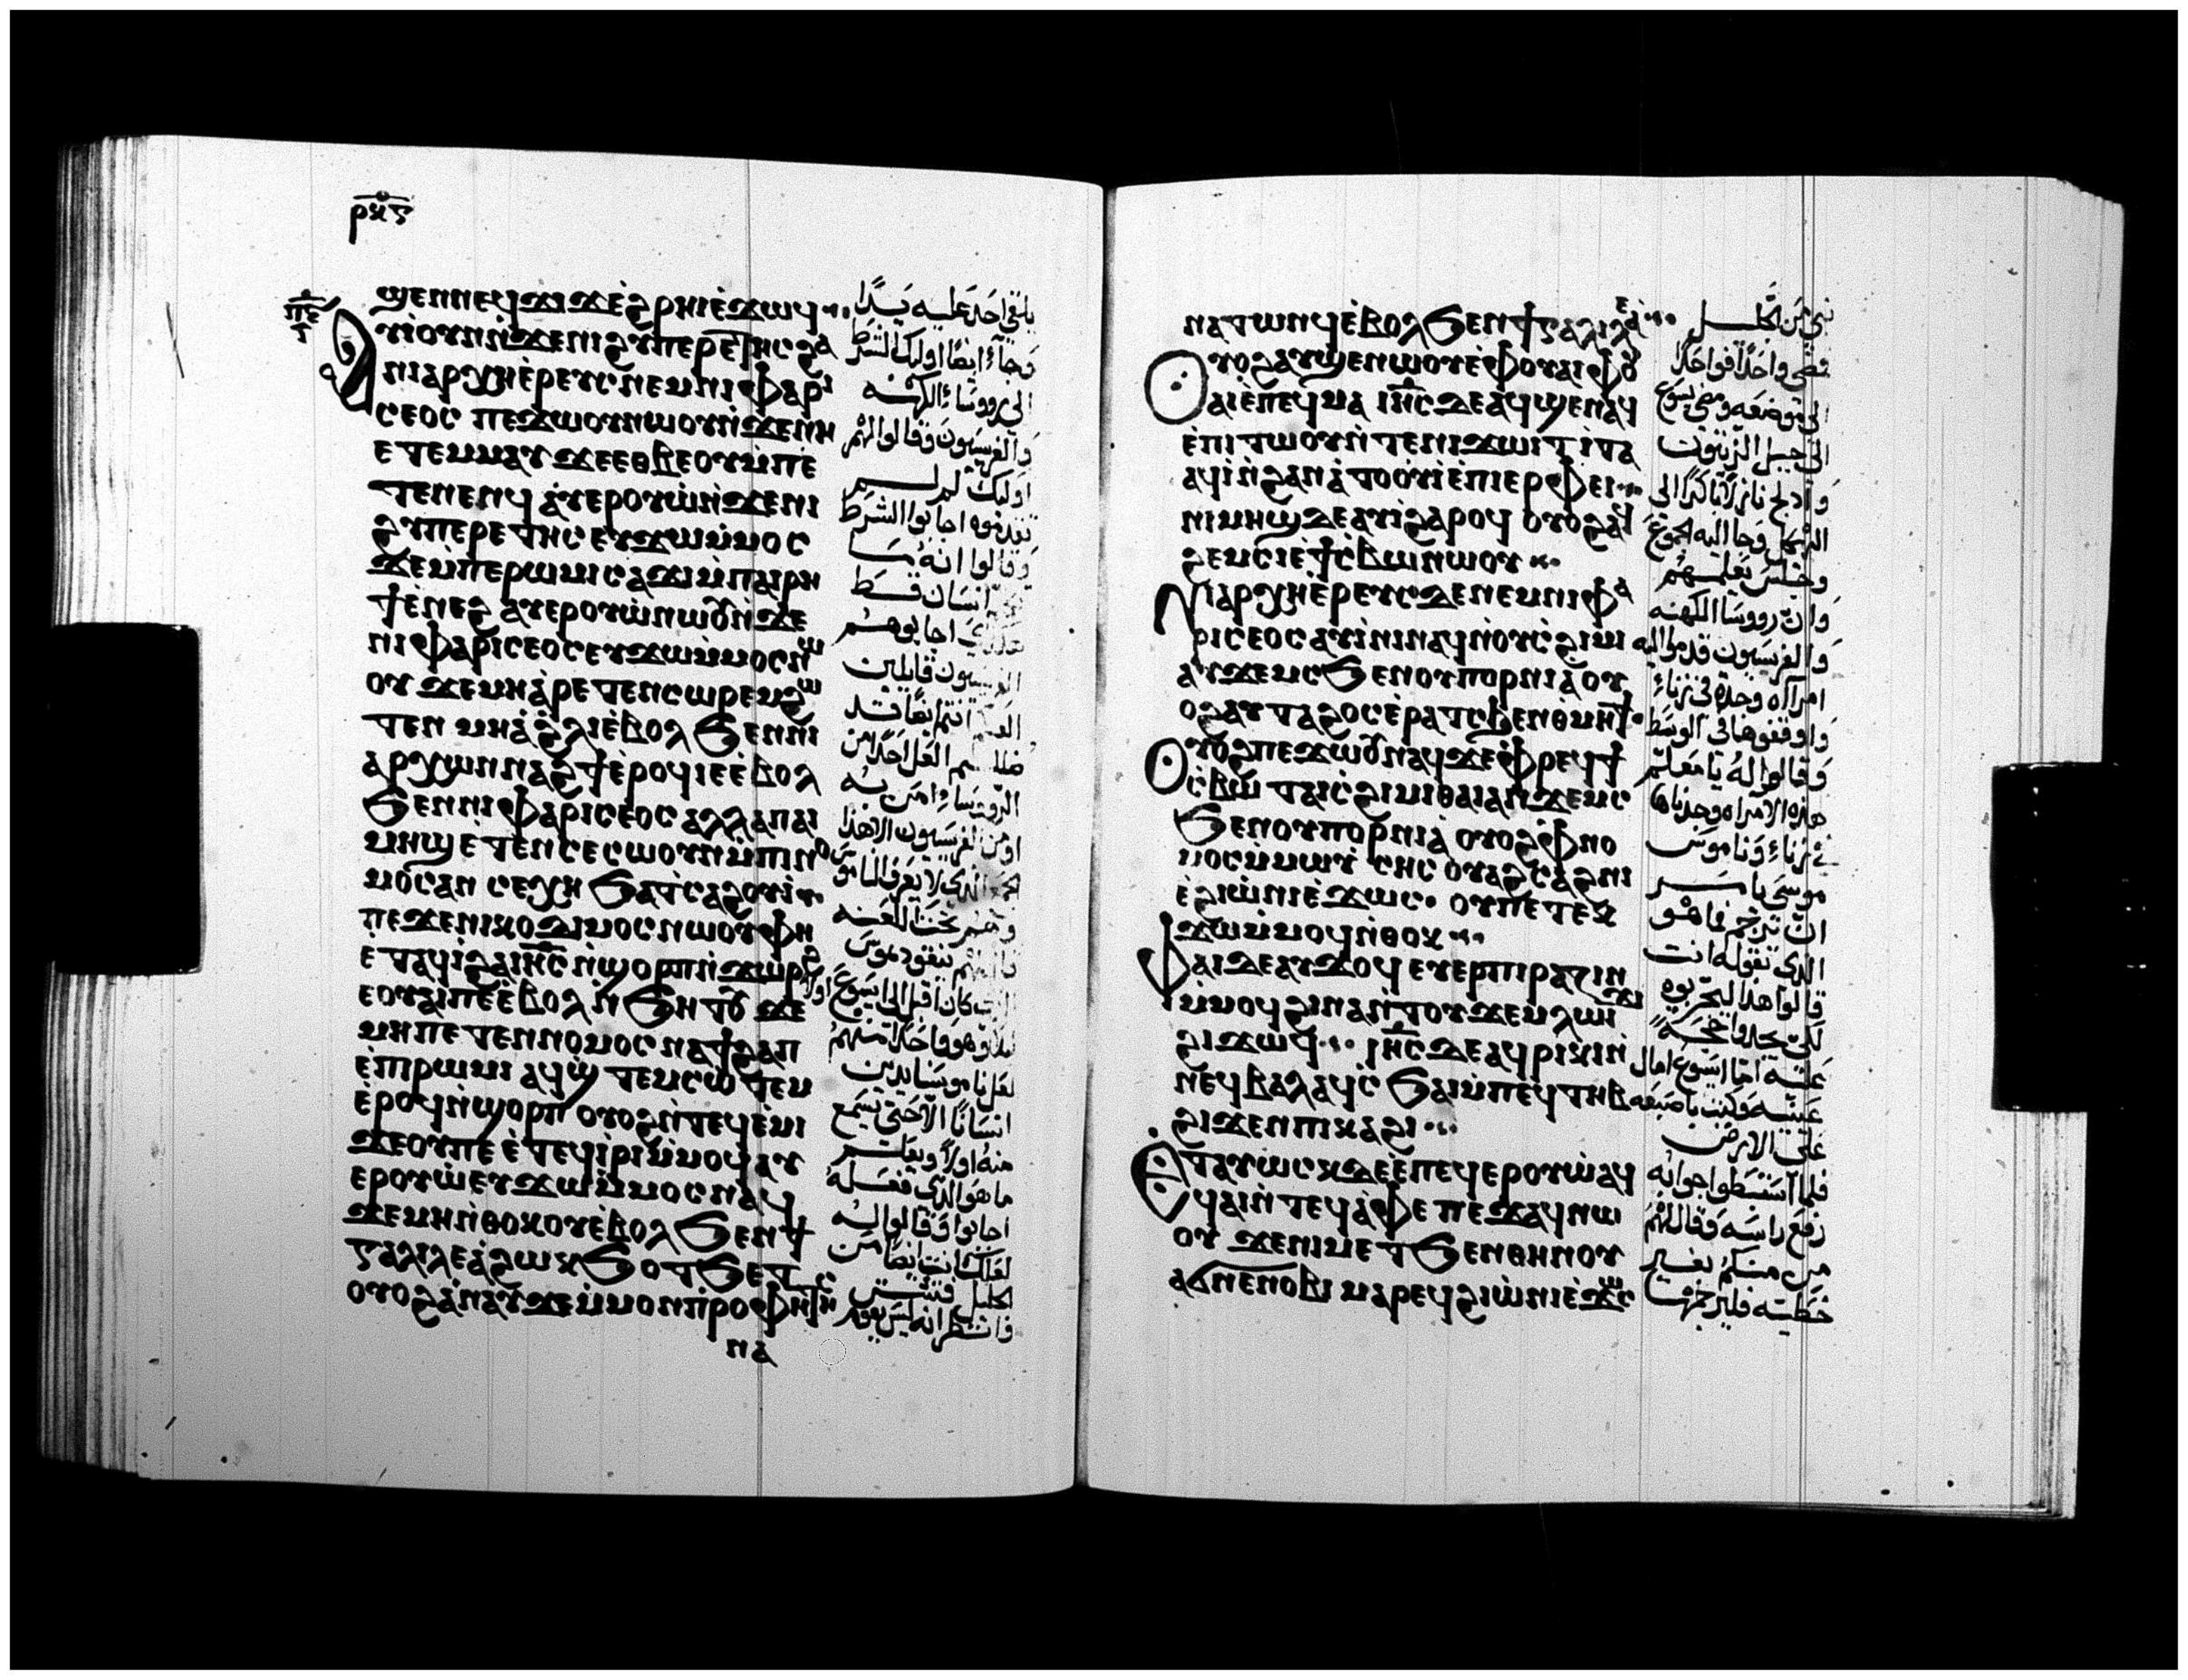 ⲣⲕⲋ
ϣⲉⲛⲛⲉϥϫⲓϫⲉ̀ϩⲣⲏⲓⲉ̀ϫⲱϥ
ⲡⲉ
ⲁⲩⲓⲟⲩⲛⲛ̀ϫⲉⲛⲓϩⲩⲡⲉⲣⲉⲧⲏⲥϩⲁ
ⲛⲓⲁⲣⲭⲏⲉ̀ⲣⲉⲩⲥⲛⲉⲙⲛⲓⲫⲁⲣⲓ
ⲥⲉⲟⲥ ⲡⲉϫⲱⲟⲩⲛⲱⲟⲩⲛ̀ϫⲉⲛⲏ
ⲉⲧⲉⲙⲙⲁⲩ ϫⲉⲉⲑⲃⲉⲟⲩⲙ̀ⲡⲉ
ⲧⲉⲛⲉⲛϥ ⲁ̀ⲩⲉⲣⲟⲩⲱ̀ⲛ̀ϫⲉⲛⲓ
ϩⲩⲡⲉⲣⲉⲧⲏⲥ ⲉⲩϫⲱⲙ̀ⲙⲟⲥ
ϫⲉⲙ̀ⲡⲉⲣⲱⲙⲓⲥⲁϫⲓⲙ̀ⲡⲁⲓⲣⲏ
ϯⲉ̀ⲛⲉϩ ⲁⲩⲉⲣⲟⲩⲱ̀ⲛⲱⲟⲩⲛϫⲉ
ⲛⲓⲫⲁⲣⲓⲥⲉⲟⲥⲉⲩϫⲱⲙ̀ⲙⲟⲥⲛⲱ
ⲟⲩ ϫⲉⲙⲏⲁ̀ⲣⲉⲧⲉⲛⲥⲱⲣⲉⲙϩⲱ
ⲧⲉⲛ ⲙⲏⲁ̀ϩⲗⲓⲉ̀ⲃⲟⲗ ϧⲉⲛⲛⲓ
ⲁⲣⲭⲱⲛⲛⲁϩϯⲉ̀ⲣⲟϥⲓⲉⲉ̀ⲃⲟⲗ
ϧⲉⲛⲛⲓⲫⲁⲣⲓⲥⲉⲟⲥ ⲁⲗⲗⲁⲡⲁⲓ
ⲙⲏϣⲉ̀ⲧⲉⲛⲥⲉⲥⲱⲟⲩⲛⲙ̀ⲡⲓⲛⲟ
ⲙⲟⲥⲁⲛ ⲥⲉⲭⲏ ϧⲁⲧ̀ⲥⲁϩⲟⲩⲓ̀
ⲡⲉϫⲉⲛⲓⲕⲟⲇⲓⲙⲟⲥⲛⲱⲟⲩⲫⲏ
ⲉⲧⲁϥⲓ̀ϩⲁⲓⲏⲥ ⲛ̀ϣⲟⲣⲡⲛ̀ϫⲱⲣϩ
ⲉⲟⲩⲁⲓⲡⲉⲉ̀ⲃⲟⲗⲛ̀ϧⲏⲧⲟⲩ ϫⲉ
ⲙⲏⲡⲉⲧⲉⲛⲛⲟⲙⲟⲥ ⲛⲁϯϩⲁⲡ
ⲉ̀ⲡⲣⲱⲙⲓ ⲁϥϣ̀ⲧⲉⲙⲥⲱ̀ⲧⲉⲙ
ⲉ̀ⲣⲟϥⲛ̀ϣⲟⲣⲡ ⲟⲩⲟϩⲛ̀ⲧⲉϥⲉ̀ⲙⲓ
ϫⲉⲟⲩⲡⲉⲉ̀ⲧⲉϥⲓ̀ⲣⲓⲙ̀ⲙⲟϥ ⲁⲩ
ⲉⲣⲟⲩⲱ̀ⲉⲩϫⲱⲙ̀ⲙⲟⲥ ⲛⲁϥ
ϫⲉⲙⲏⲛ̀ⲑⲟⲕⲟⲩⲉ̀ⲃⲟⲗ ϧⲉⲛϯ
ⲅⲁⲗⲓⲗⲉⲁ̀ϩⲱⲕϧⲟⲧϧⲉⲧ
ⲟⲩⲟϩⲁ̀ⲛⲁⲩϫⲉⲙ̀ⲙⲟⲛⲡ̀ⲣⲟⲫⲏⲧⲏ
ⲛⲁ
يلقي احد عليه يدا
وجآء ايضا اوليك الشرط
الي رووسآء الكهنه
والفريسيون وقالوا لهم
اوليك لم لم
تقدموه اجابوا الشرط
وقالوا انه ما
انسان قط
اجابوهم
الفريسيون قايلين
انتم ايضا قد
العل احدا من
الرووسآء امن به
او من الفريسيون الا هذا
الذي لا يعرف الناموس
وهم تحت اللعنه
نيقوديموس
كان اقبل الي ايسوع اولا
وهو واحدا منهم
لعل ناموسنا يدين
انسانا الا حتي يسمع
منه اولا ويعلم
ما هو الذي فعله
اجابوا وقالوا له
لعلك انت ايضا من
الجليل فتش
وانظر انه ليس يقوم
ⲛⲁⲧⲱⲛϥⲉ̀ⲃⲟⲗϧⲉⲛϯⲅⲁⲗⲓⲗⲉⲁ̀
ⲟⲩⲟϩⲁⲩϣⲉⲛⲱⲟⲩⲉ̀ⲫⲟⲩⲁⲓⲫⲟⲩ
ⲁⲓⲉ̀ⲡⲉϥⲙⲁ ⲓⲏⲥ ⲇⲉⲁϥϣⲉⲛⲁϥ
ⲉ̀ⲡⲓⲧⲱⲟⲩⲛ̀ⲧⲉⲛⲓϫⲱⲓⲧ ⲓⲧⲁ
ⲁϥⲓ̀ⲛ̀ϩⲁⲛⲁ̀ⲧⲟⲟⲩⲓ̀ⲉ̀ⲡⲓⲉⲣⲫⲉⲓ
ⲛⲓⲙⲏϣⲇⲉⲁⲩⲓ̀ϩⲁⲣⲟϥ ⲟⲩⲟϩⲁϥ
ϩⲉⲙⲥⲓⲉ̀ϯⲥ̀ⲃⲱⲛⲱⲟⲩ
ⲛⲓⲁⲣⲭⲏⲉ̀ⲣⲉⲩⲥⲇⲉⲛⲉⲙⲛⲓⲫⲁ
ⲣⲓⲥⲉⲟⲥⲁⲩⲓ̀ⲛⲓⲛⲁϥⲛ̀ⲟⲩⲥ̀ϩⲓⲙⲓ
ⲁⲩϫⲉⲙⲥϧⲉⲛⲟⲩⲡⲟⲣⲛⲓⲁ̀ⲟⲩ
ⲟϩⲁⲩⲧⲁϩⲟⲥⲉ̀ⲣⲁⲧⲥϧⲉⲛⲑⲙⲏϯ
ⲟⲩⲟϩⲡⲉϫⲱⲟⲩⲛⲁϥϫⲉⲫⲣⲉϥϯ
ⲥ̀ⲃⲱ ⲧⲁⲓⲥ̀ϩⲓⲙⲓⲑⲁⲓⲁⲛϫⲉⲙⲥ
ϧⲉⲛⲟⲩⲡⲟⲣⲛⲓⲁ̀ ⲟⲩⲟϩⲫⲛⲟ
ⲙⲟⲥⲙ̀ⲙⲱⲩⲓ̀ⲥⲏⲥ ⲟⲩⲁϩⲥⲁϩⲛⲓ
ⲉ̀ϩⲓⲱ̀ⲛⲓⲉ̀ϫⲱⲥ ⲟⲩⲡⲉⲧⲉⲕ
ϫⲱⲙ̀ⲙⲟϥⲛ̀ⲑⲟⲕ
ⲫⲁⲓⲇⲉⲁⲩϫⲟϥ ⲉⲩⲉⲣⲡⲓⲣⲁⲍⲓⲛ
ⲙ̀ⲙⲟϥϩⲓⲛⲁⲛ̀ⲧⲟⲩϫⲉⲙⲗⲱⲓϫⲓ
ϩⲓϫⲱϥ ⲓⲏⲥ ⲇⲉⲁϥⲣⲓⲕⲓⲛ̀
ⲛⲉϥⲃⲁⲗⲁϥⲥ̀ϧⲁⲓⲙ̀ⲡⲉϥⲧⲏⲃ
ϩⲓϫⲉⲛⲡⲓⲕⲁϩⲓ
ⲉⲧⲁⲩⲱⲥⲕⲇⲉⲉ̀ⲡⲉϥⲉⲣⲟⲩⲱ̀ⲁϥ
ϥⲁⲓⲛ̀ⲧⲉϥⲁ̀ⲫⲉ ⲡⲉϫⲁϥⲛⲱ
ⲟⲩ ϫⲉⲛⲓⲙⲉⲧϧⲉⲛⲑⲏⲛⲟⲩ
ⲁϭⲛⲉⲛⲟⲃⲓ ⲙⲁⲣⲉϥϩⲓⲱ̀ⲛⲓⲉ̀ϫⲱⲥ
نبي من الجليل
فمضي واحدا فواحدا
الي موضعه ومضي يسوع
الي جبل الزيتون
وادلج نازلا باكرا الي
الهيكل وجا اليه الجموع
وجلس يعلمهم
وان رووسا الكهنه
والفريسيون قدموا اليه
امراه وجدة في زناء
واوقفوها في الوسط
وقالوا له يا معلم
هذه الامراه وجدناها
في زناء وناموس
موسي يامر
ان ترجم فما هو
الذي تقوله انت
قالوا هذا ليجربوه
لكي يجدوا حجه
عليه اما ايسوع امال
عينيه وكتب باصبعه
علي الارض
فلما استبطوا جوابه
رفع راسه وقال لهم
من منكم بغير
خطيه فليرجمها